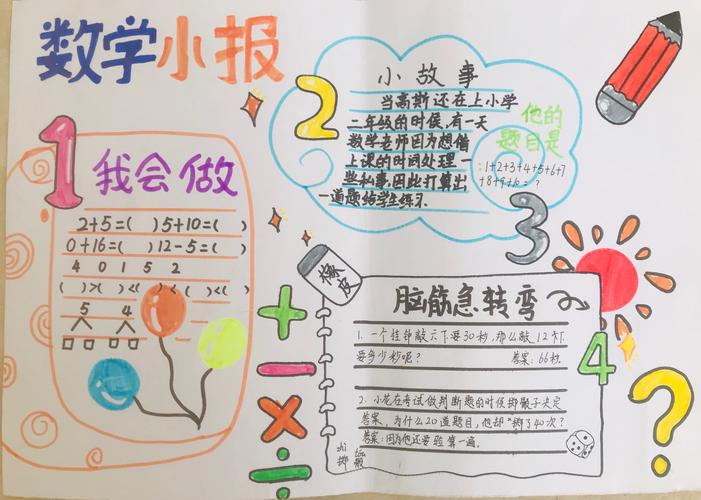 数学小报
1
我会做
2+5=( ) 5+10=( )
0+16=( ) 12-5=( )
4 0 1 5 2
( )>( )<( )<( )<( )
5 4
2
小故事
当高斯还在上小学
二年级的时候,有一天
数学老师因为想借
上课的时间处理一
些私事,因此打算出
一道题给学生练习.
他的
题目是
:1+2+3+4+5+6+7
+8+9+10=?
3
橡皮
脑筋急转弯
1. 一个挂钟敲六下要30秒,那么敲12下
要多少秒呢? 答案:66秒.
2. 小龙在考试做判断题的时候掷骰子决定
答案,为什么20道题目,他却掷了40次?
答案:因为他还要验算一遍.
zhì tóu
掷 骰
4
+
-
×
÷
?